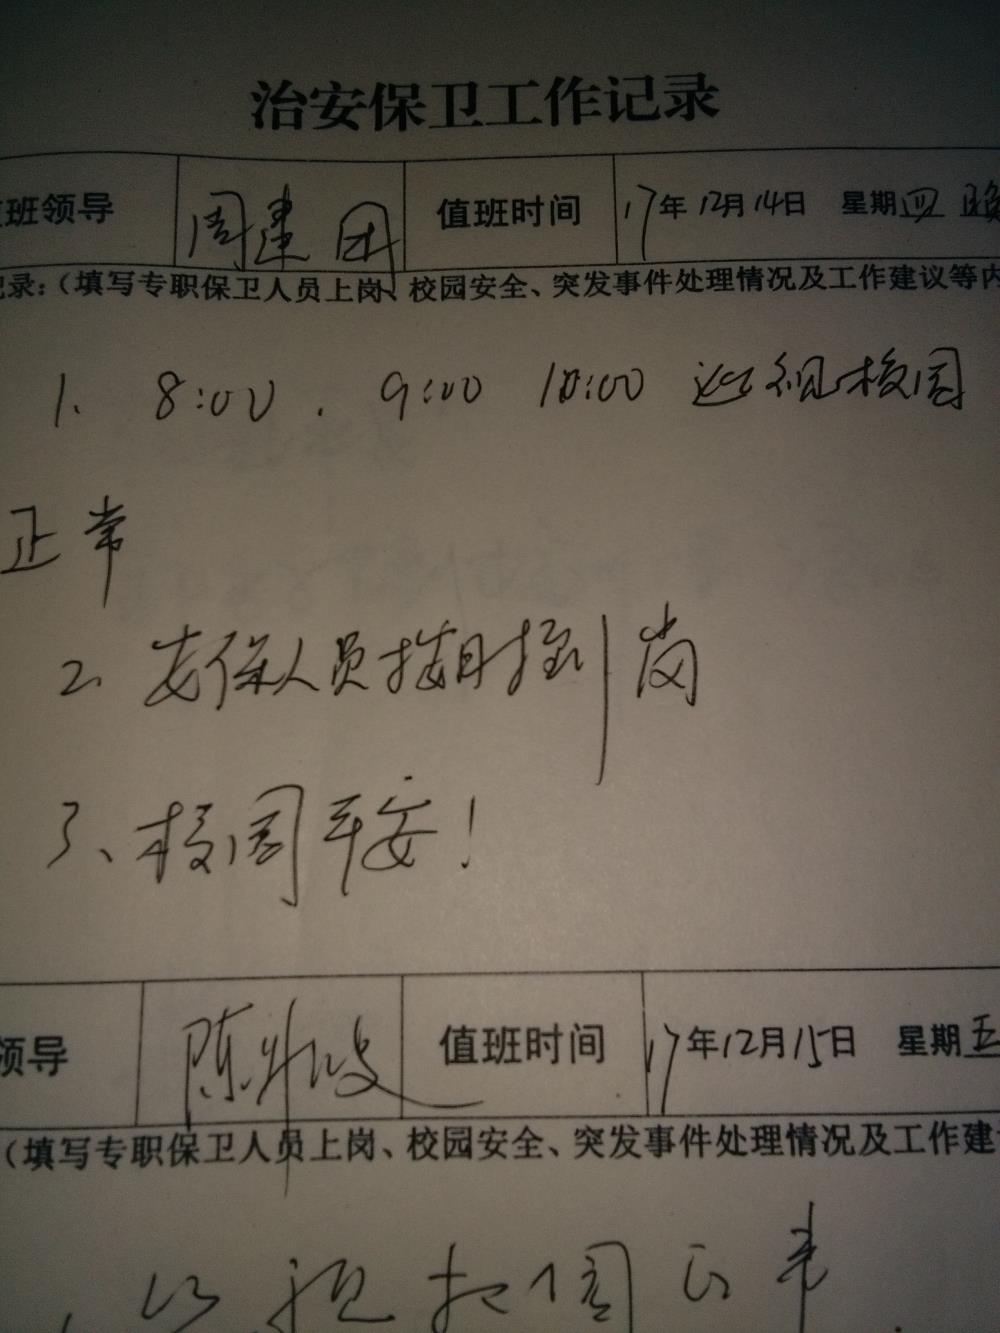 治安保卫工作记录
班领导 周建团 值班时间 17年12月14日 星期四 晚
记录:(填写专职保卫人员上岗、校园安全、突发事件处理情况及工作建议等内
1、 8:00 . 9:00 10:00 巡视校园
正常
2、安保人员按时到岗
3、校园平安!
领导 陈 值班时间 17年12月15日 星期五
(填写专职保卫人员上岗、校园安全、突发事件处理情况及工作建
巡视校园正常